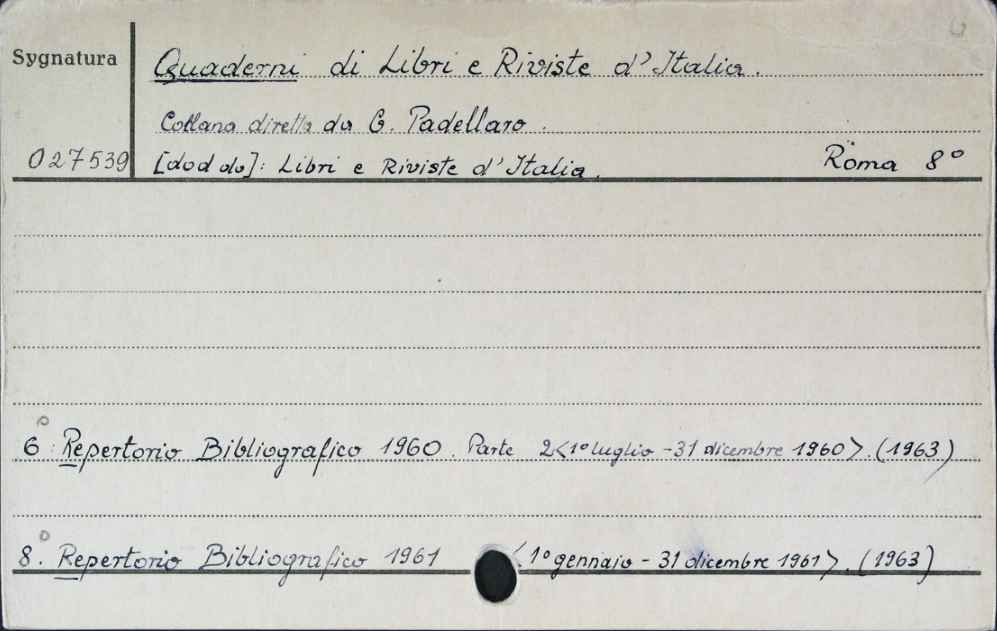 Sygnatura
Quaderni di Libri e Riviste d'Italia.
Collana diretta da G. Padellaro.
027539 [dod do]: Libri e Riviste d'Italia. Roma 8°
6. Repertorio Bibliografico 1960. Parte 2<1° luglio - 31 dicembre 1960>. (1963)
8. Repertorio Bibliografico 1961 <1° gennaio - 31 dicembre 1961>. (1963)